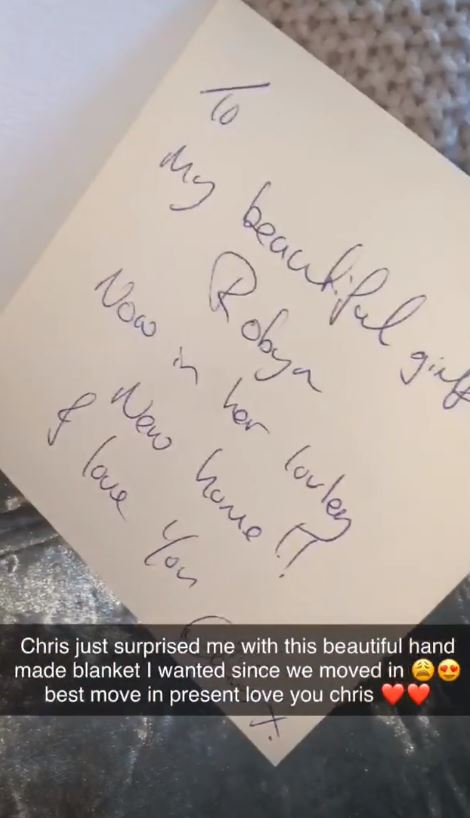 To
My beautiful
Robyn
Now in her lovley
New home!!
I love you
x.
Chris just surprised me with this beautiful hand
made blanket I wanted since we moved in 😩😍
best move in present love you chris ❤️❤️